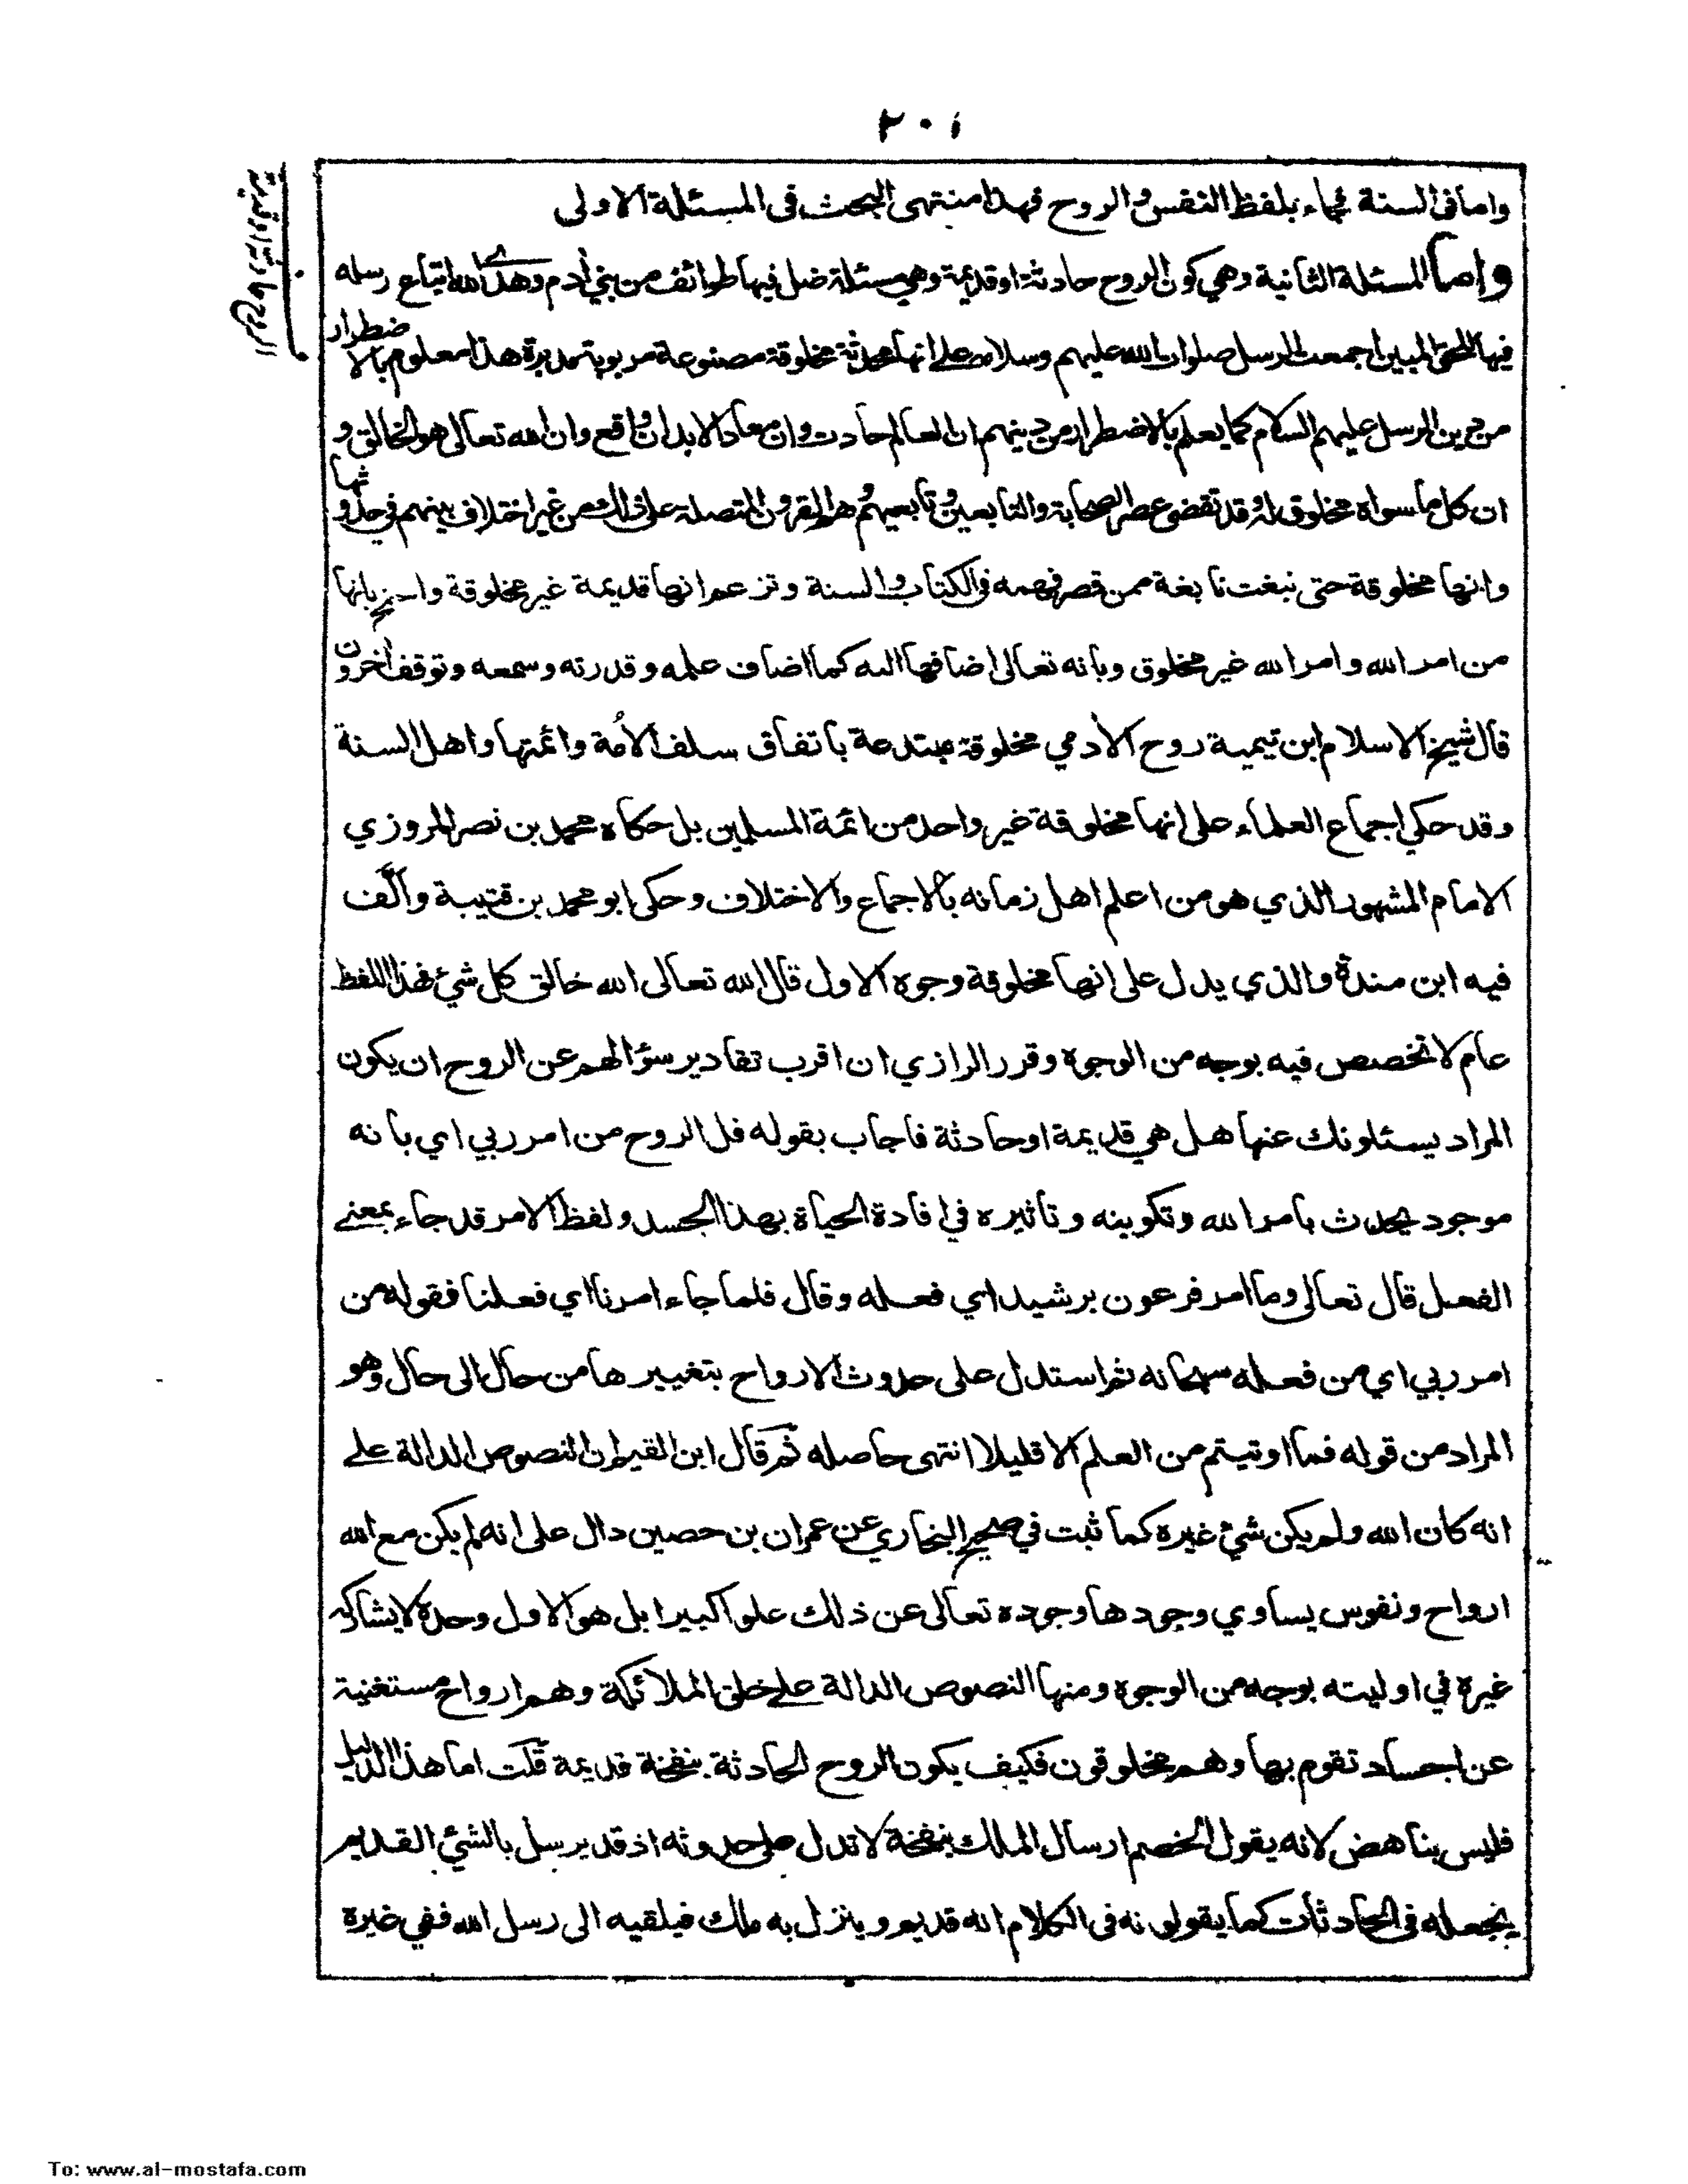 ٢٠١
واما في السنة فجاء بلفظ النفس والروح فهذا منتهى البحث في المسئلة الاولى
واما المسئلة الثانية وهي كون الروح حادثة او قديمة وهي مسئلة ضل فيها طوائف من بني أدم وهدى الله اتباع رسله
فيها للحق المبين اجمعت الرسل صلوات الله عليهم وسلامه على انها محدثة مخلوقة مصنوعة مربوبة مدبرة هذا معلوم بالاضطرار
من دين الرسل عليهم السلام كما يعلم بالاضطرار من دينهم ان العالم حادث وان معاد الابدان واقع وان الله تعالى هو الخالق و
ان كل ما سواه مخلوق له وقد تقضى عصر الصحابة والتابعين وتابعيهم وهم القرون المتصلة على ذلك من غير اختلاف بينهم في حدوثها
وانها مخلوقة حتى نبغت نابغة ممن قصر فهمه في الكتاب والسنة وتزعم انها قديمة غير مخلوقة واحتج بانها
من امر الله وامر الله غير مخلوق وبانه تعالى اضافها اليه كما اضاف علمه وقدرته وسمعه وتوقف أخرون و
قال شيخ الاسلام ابن تيمية روح الأدمي مخلوقة مبتدعة باتفاق سلف الأمة وائمتها واهل السنة
وقد حكى اجماع العلماء على انها مخلوقة غير واحد من ائمة المسلمين بل حكاه محمد بن نصر المروزي
الامام المشهور الذي هو من اعلم اهل زمانه بالاجماع والاختلاف وحكى ابو محمد بن قتيبة وألَّف
فيه ابن مندة والذي يدل على انها مخلوقة وجوه الاول قال الله تعالى الله خالق كل شيء فهذا اللفظ
عام لا تخصص فيه بوجه من الوجوه وقرر الرازي ان اقرب تقادير سؤالهم عن الروح ان يكون
المراد يسئلونك عنها هل هي قديمة او حادثة فاجاب بقوله قل الروح من امر ربي اي بانه
موجود يحدث بامر الله وتكوينه وتاثيره في افادة الحياة بهذا الجسد ولفظ الامر قد جاء بمعنى
الفعل قال تعالى وما امر فرعون برشيد اي فعله وقال فلما جاء امرنا اي فعلنا فقوله من
امر ربي اي من فعله سبحانه ثم استدل على حدوث الارواح بتغييرها من حال الى حال وهو
المراد من قوله فما اوتيتم من العلم الا قليلا انتهى حاصله ثم قال ابن القيم ان النصوص الدالة على
انه كان الله ولم يكن شيء غيره كما ثبت في صحيح البخاري عن عمران بن حصين دال على انه لم يكن مع الله
ارواح ونفوس يساوي وجودها وجوده تعالى عن ذلك علوا كبيرا بل هو الاول وحده لا يشاركه
غيره في اوليته بوجه من الوجوه ومنها النصوص الدالة على خلق الملائكة وهم ارواح مستغنية
عن اجساد تقوم بها وهم مخلوقون فكيف يكون الروح الحادثة بنفخة قديمة قلت اما هذا الدليل
فليس بناهض لانه يقول الخصم ارسال الملك بنفخة لا تدل على حدوثه اذ قد يرسل بالشئ القديم
يجعله في الحادثات كما يقولونه في الكلام انه قديم وينزل به ملك فيلقيه الى رسل الله ففي غيره
الروح حادثة او قديمة
To: www.al-mostafa.com